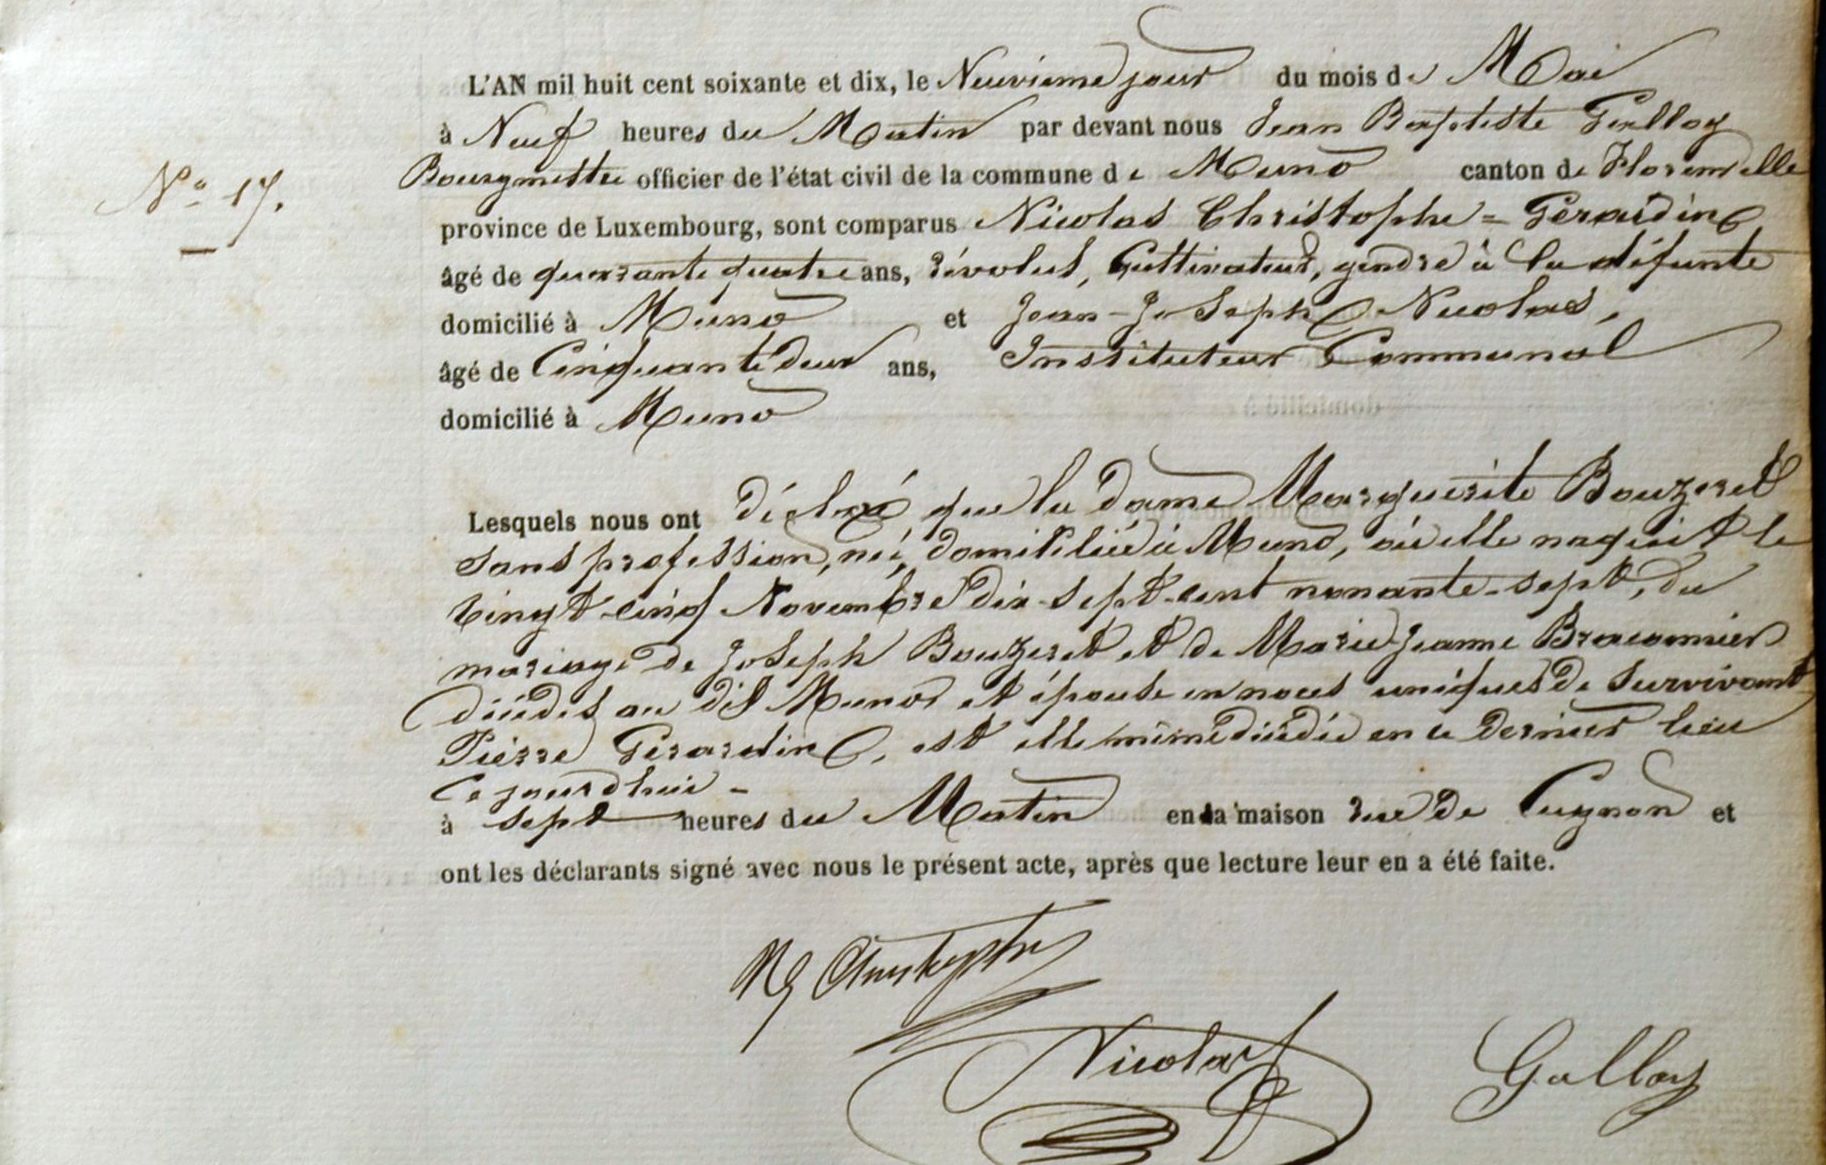 L'AN mil huit cent soixante et dix, le Neuvième jour du mois de Mai
à Neuf heures du Matin par devant nous Jean Baptiste Galloy
N° 17.
Bourgmestre officier de l'état civil de la commune de Muno canton de Florenville
province de Luxembourg, sont comparus Nicolas Christophe = Gérardin
âgé de quarante quatre ans, révolus, Cultivateur, gendre à la défunte
domicilié à Muno et Jean-Joseph Nicolas,
âgé de Cinquante deux ans, Instituteur Communal
domicilié à Muno
Lesquels nous ont déclaré que la dame Marguerite Bouzeret
sans profession, née, domiciliée à Muno, où elle naquit le
vingt-cinq Novembre dix-sept-cent nonante-sept, du
mariage de Joseph Bouzeret et de Marie-Jeanne Braconnier
décédés au dit Muno et épouse en noces uniques de survivant
Pierre Gérardin, est elle même décédée en ce dernier lieu
Cejourd'hui -
à sept heures du Matin en la maison rue de Cugnon et
ont les déclarants signé avec nous le présent acte, après que lecture leur en a été faite.
NG Christophe
Nicolas
Galloy